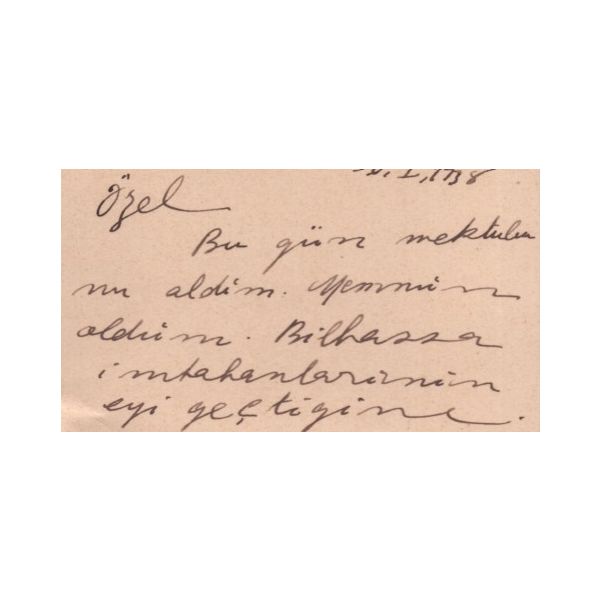 Özel
Bu gün mektubu
nu aldim. Memnun
oldum. Bilhassa
imtahanlarinin
eyi geçtigine.